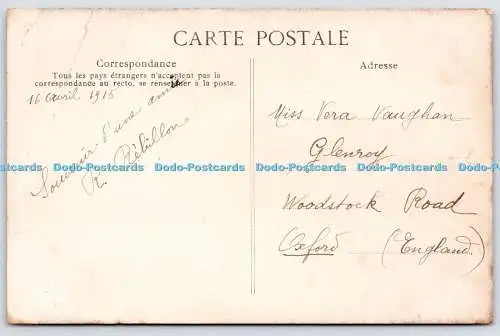 CARTE POSTALE
Correspondance
Tous les pays étrangers n'acceptent pas la
correspondance au recto, se renseigner à la poste.
16 Avril 1915
Souvenir d'une amie
R. Rébillon
Adresse
Miss Vera Vaughan
Glenroy
Woodstock Road
Oxford (England)
Dodo-Postcards Dodo-Postcards Dodo-Postcards Dodo-Postcards Dodo-Postcards